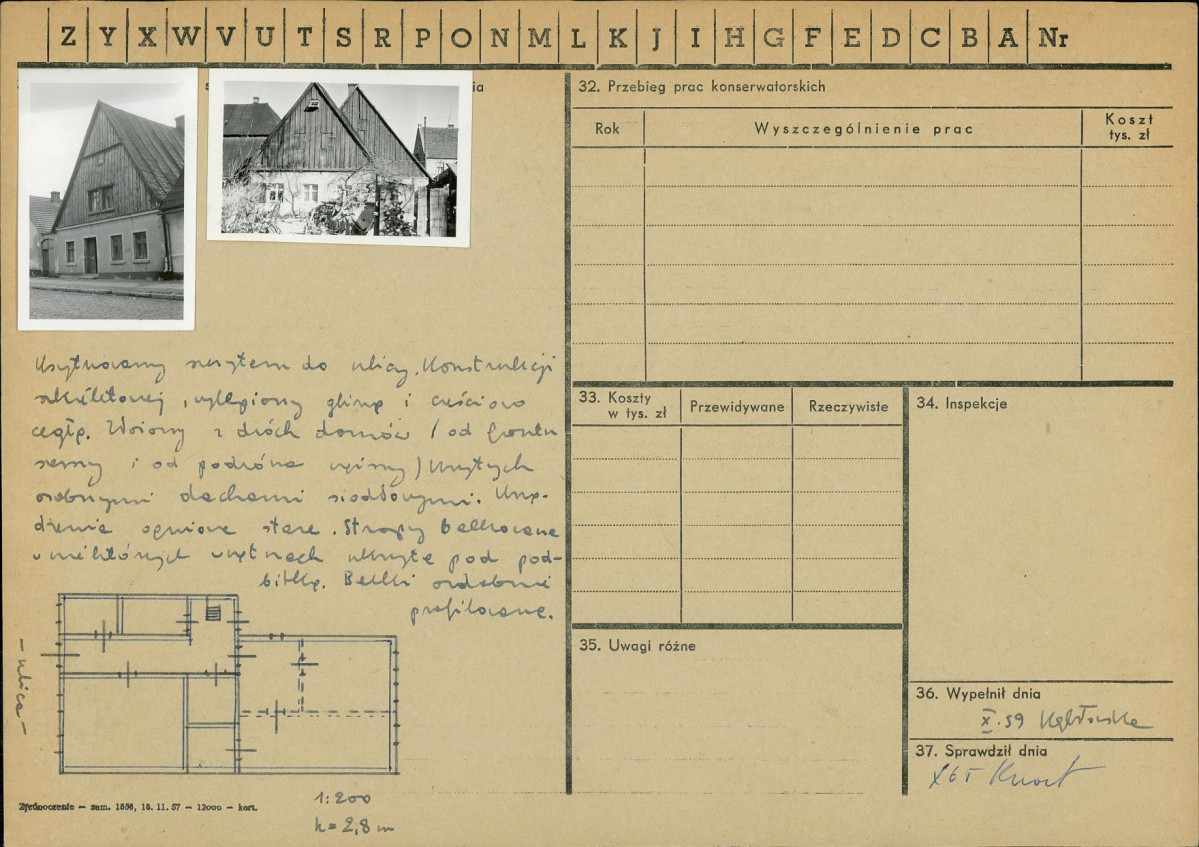 Z Y X W V U T S R P O N M L K J I H G F E D C B A Nr
32. Przebieg prac konserwatorskich
Rok
Wyszczególnienie prac
Koszt
tys. zł
Usytuowany szczytem do ulicy. Konstrukcji
szkieletowej, wylepiony gliną i częściowo
cegłą. Złożony z dwóch domów / od frontu
i od podwórza węższy) krytych
osobnymi dachami siodłowymi. Urzą-
dzenia ogniowe stare. Stropy belkowane
w niektórych wnętrzach ukryte pod pod-
bitką. Belki ozdobnie
profilowane.
- ulica -
1:200
h = 2,8 m
Zjednoczenie — zam. 1856, 16. 11. 57 — 12000 — kart.
33. Koszty
w tys. zł
Przewidywane
Rzeczywiste
34. Inspekcje
35. Uwagi różne
36. Wypełnił dnia
X.59
37. Sprawdził dnia